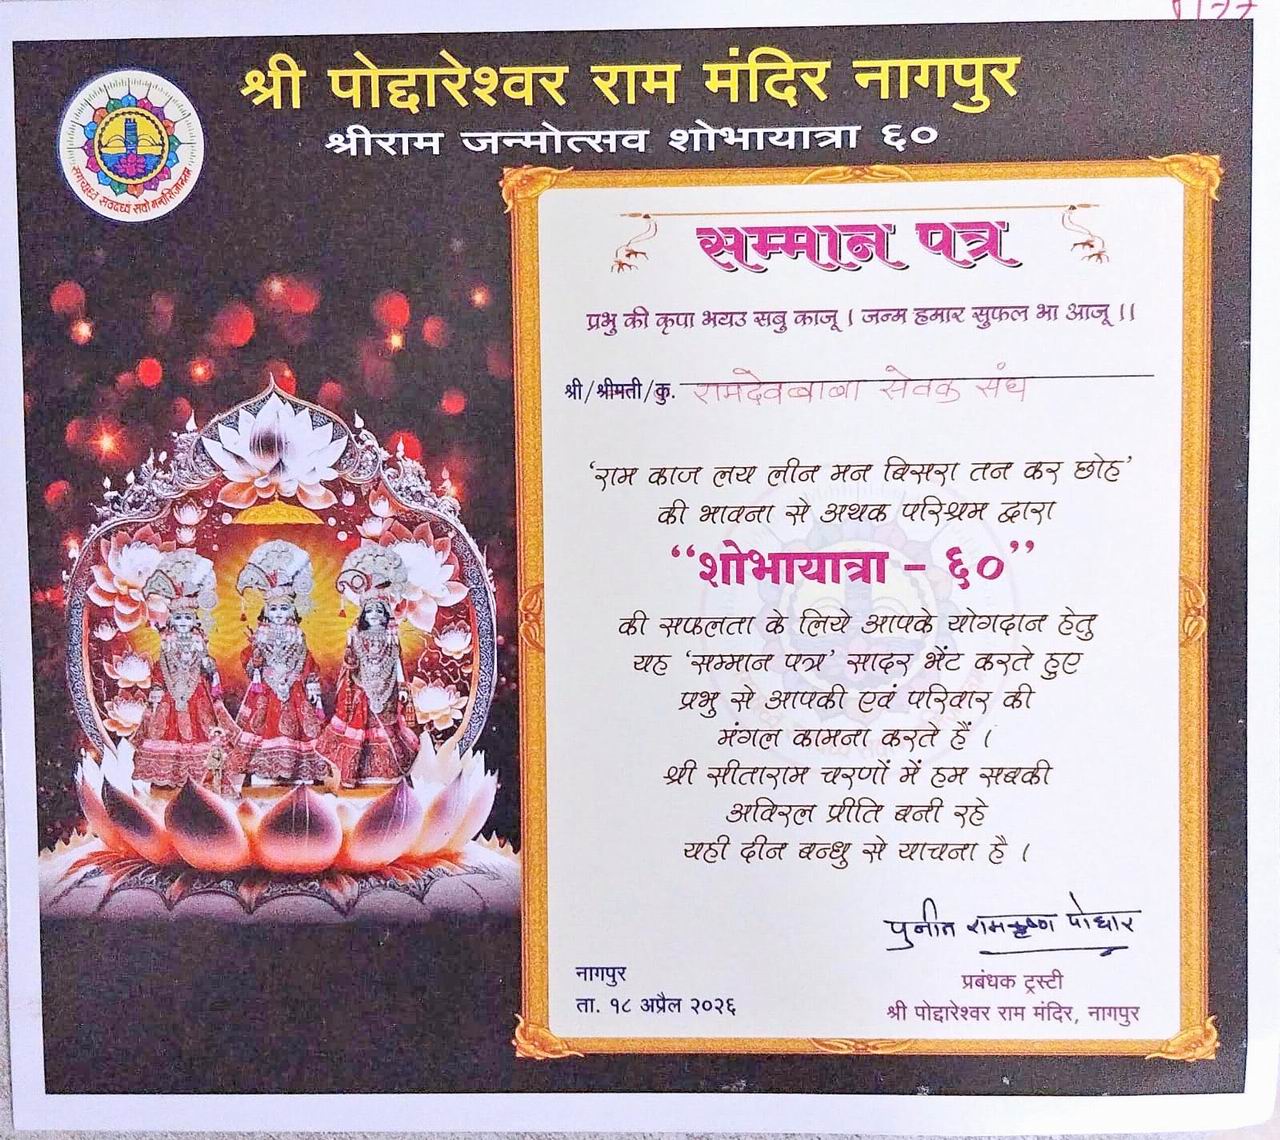 श्री पोद्दारेश्वर राम मंदिर नागपुर
श्रीराम जन्मोत्सव शोभायात्रा ६०
सम्मान पत्र
प्रभु की कृपा भयउ सबु काजू । जन्म हमार सुफल भा आजू ।।
श्री/श्रीमती/कु. रामदेवबाबा सेवक संघ
‘राम काज लय लीन मन बिसरा तन कर छोह’
की भावना से अथक परिश्रम द्वारा
“शोभायात्रा – ६०”
की सफलता के लिये आपके योगदान हेतु
यह ‘सम्मान पत्र’ सादर भेंट करते हुए
प्रभु से आपकी एवं परिवार की
मंगल कामना करते हैं ।
श्री सीताराम चरणों में हम सबकी
अविरल प्रीति बनी रहे
यही दीन बन्धु से याचना है ।
पुनीत रामकृष्ण पोद्दार
नागपुर
ता. १८ अप्रैल २०२६
प्रबंधक ट्रस्टी
श्री पोद्दारेश्वर राम मंदिर, नागपुर